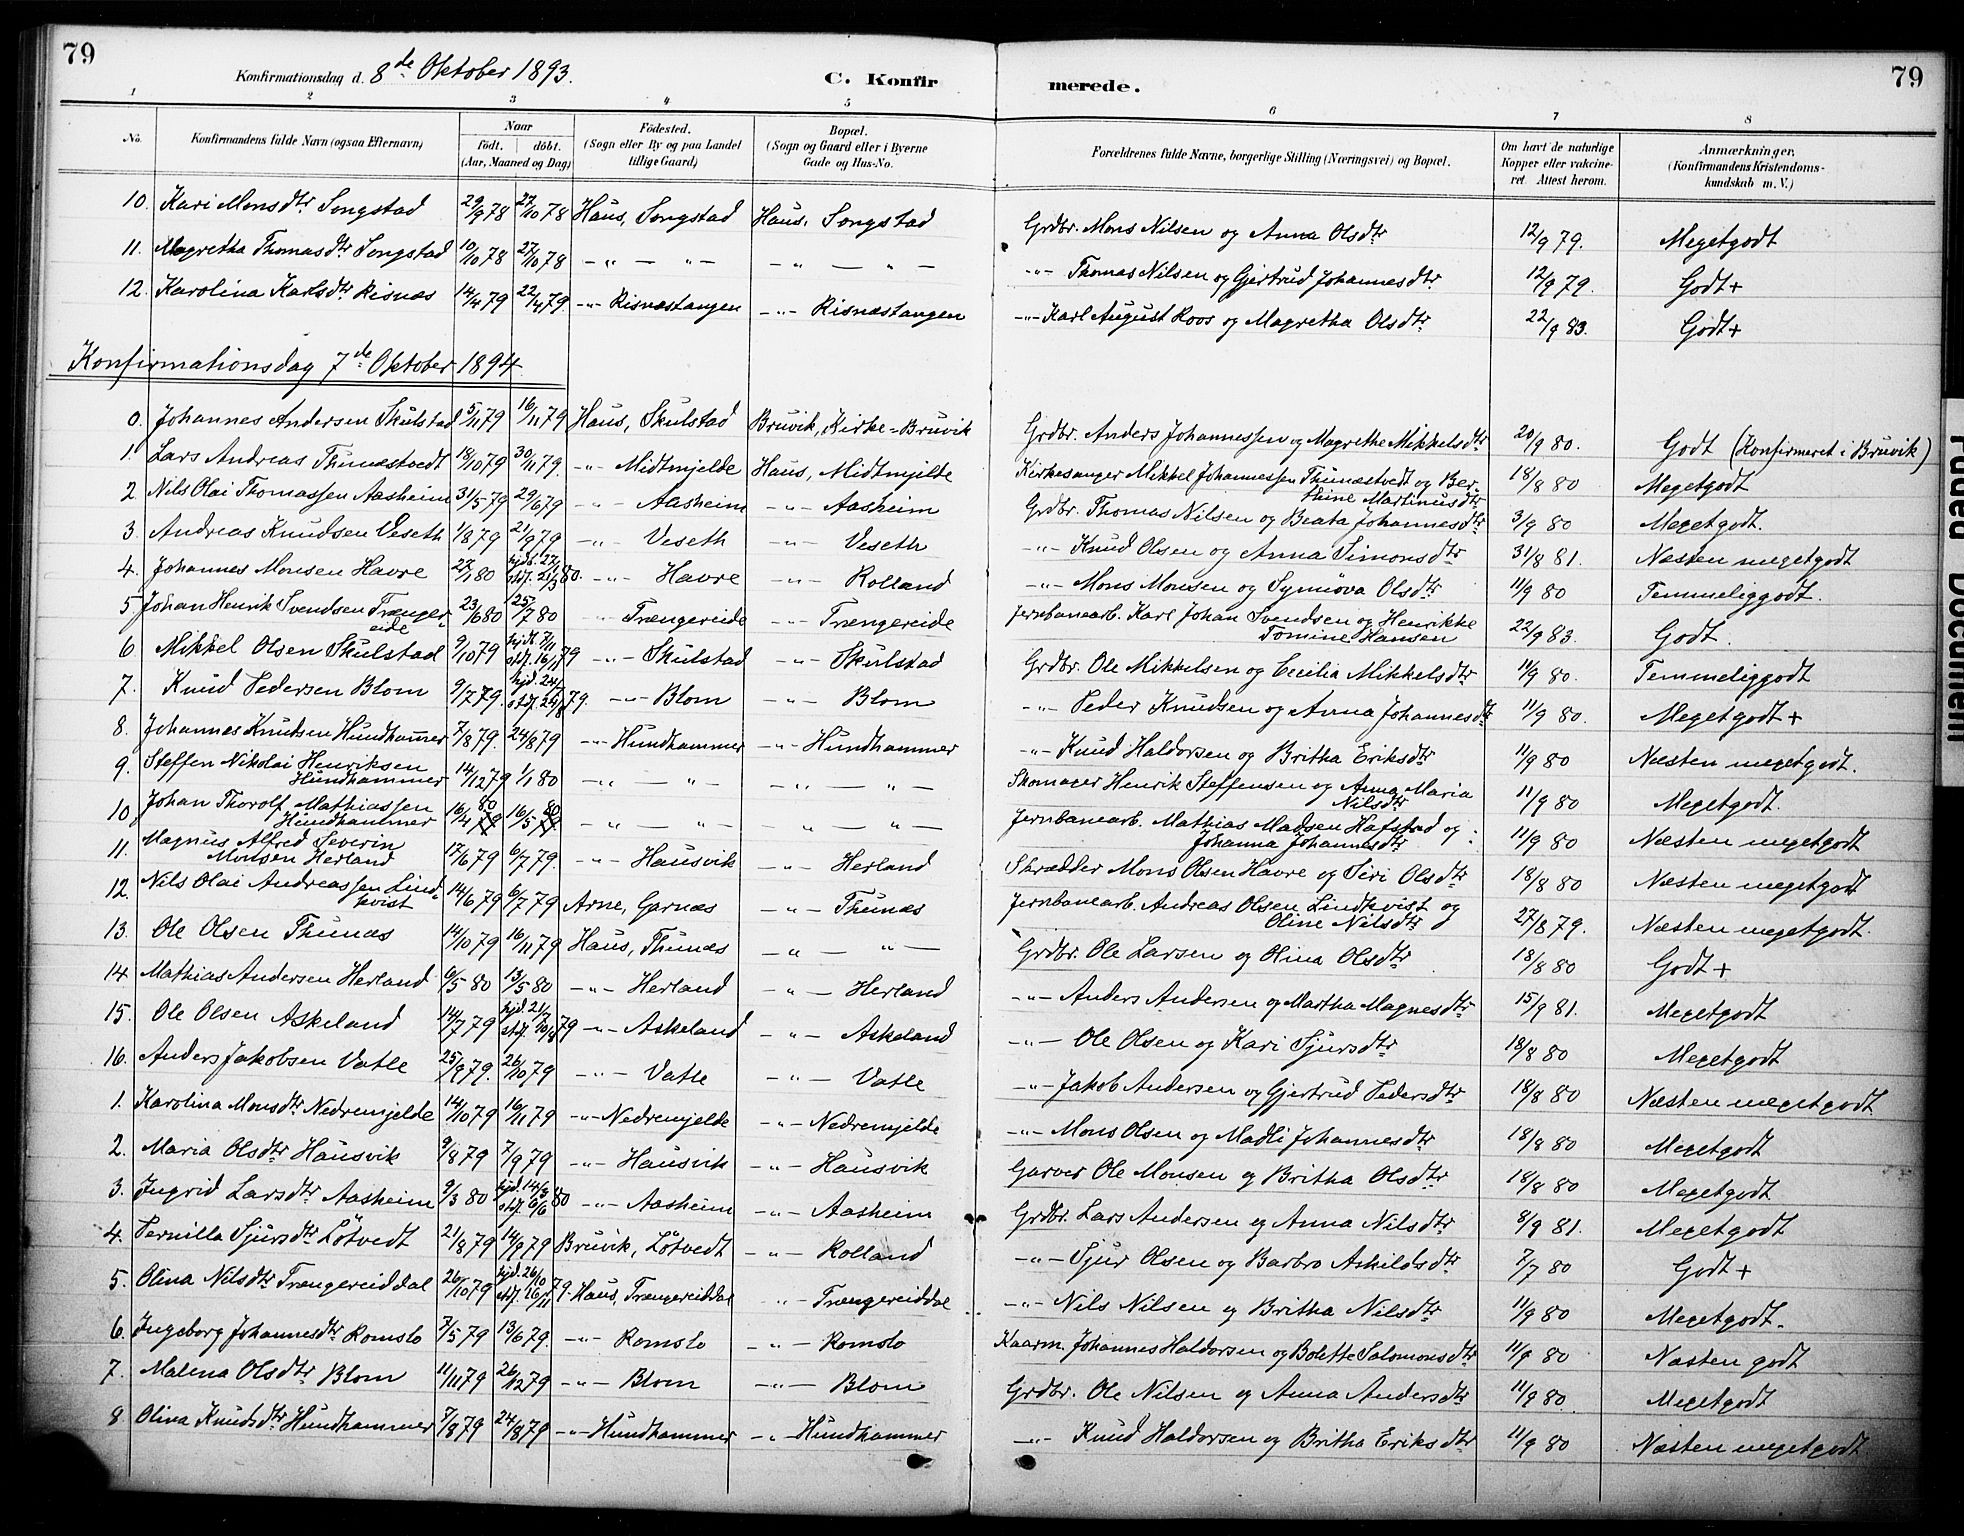 79
Konfirmationsdag d. 8de Oktober 1893.
C. Konfir
merede.
79
1 2 3 4 5 6 7 8
No. Konfirmandens fulde Navn (ogsaa Efternavn) Naar født. døbt. (Aar, Maaned og Dag) Fødested. (Sogn eller By og paa Landet tillige Gaard) Bopæl. (Sogn og Gaard eller i Byerne Gade og Hus-No. Forældrenes fulde Navne, borgerlige Stilling (Næringsvei) og Bopæl. Om havt de naturlige Kopper eller vakcineret. Attest herom. Anmærkninger, (Konfirmandens Kristendomskundskab m. V.)
10. Kari Monsdtr Songstad 29/9 78 27/10 78 Haus, Songstad Haus, Songstad Grdbr. Mons Nilsen og Anna Olsdtr 12/9 79. Megetgodt
11. Magretha Thomasdtr Songstad 10/10 78 27/10 78 -"- "- -"- "- -"- Thomas Nilsen og Gjertrud Johannesdtr 12/9 79. Godt+
12. Karolina Karlsdtr Risnæs 14/4 79 22/4 79. -"- Risnæstangen -"- Risnæstangen -"- Karl August Roos og Magretha Olsdtr 22/9 83. Godt+
Konfirmationsdag 7de Oktober 1894
0. Johannes Andersen Skulstad 5/11 79 16/11 79 Haus, Skulstad Bruvik, Kirke-Bruvik Grdbr. Anders Johannessen og Magrethe Mikkelsdtr 20/9 80. Godt (Konfirmeret i Bruvik)
1. Lars Andreas Thunæstvedt 18/10 79 30/11 79. -"- Midtmjelde Haus, Midtmjelde Kirkesanger Mikkel Johannessen Thunæstvedt og Berthine Martinusdtr 18/8 80 Megetgodt
2. Nils Olai Thomassen Aasheim 31/5 79 29/6 79 -"- Aasheim -"- Aasheim Grdbr. Thomas Nilsen og Beata Johannesdtr 3/9 80 Megetgodt.
3. Andreas Knudsen Veseth 1/8 79 21/9 79 -"- Veseth -"- Veseth -"- Knud Olsen og Anna Simonsdtr 31/8 81. Næsten megetgodt
4. Johannes Monsen Havre 27/1 80 hjdt. 27/1 stdf. 21/3 80. -"- Havre -"- Rolland -"- Mons Monsen og Synnöva Olsdtr 11/9 80 Temmeliggodt.
5. Johan Henrik Svendsen Trængereide 23/6 80 25/7 80 -"- Trængereide -"- Trængereide Jernbanearb. Karl Johan Svendsen og Henrikke Tomine Hansen 22/9 83. Godt.
6. Mikkel Olsen Skulstad 9/10 79 hjdt. 7/11 stdf. 16/11 79 -"- Skulstad -"- Skulstad Grdbr. Ole Mikkelsen og Cecilia Mikkelsdtr 11/9 80. Temmeliggodt
7. Knud Pedersen Blom 9/7 79. hjd. 24/7 stdf. 24/8 79. -"- Blom -"- Blom -"- Peder Knudsen og Anna Johannesdtr 11/9 80. Megetgodt+
8. Johannes Knudsen Hundhammer 7/8 79. 24/8 79 -"- Hundhammer -"- Hundhammer -"- Knud Haldorsen og Britha Eriksdtr 11/9 80 Næsten megetgodt.
9. Steffen Nikolai Henriksen Hundhammer 14/12 79 1/1 80 -"- "- -"- "- Skomager Henrik Steffensen og Anna Maria Nilsdtr 11/9 80 Megetgodt.
10. Johan Thorolf Mathiassen Hundhammer 16/4 80 16/5 80 -"- "- -"- "- Jernbanearb. Mathias Madsen Hafstad og Johanna Johannesdtr 11/9 80 Næsten megetgodt
11. Magnus Alfred Severin Monsen Herland 17/6 79 6/7 79. -"- Hausvik -"- Herland Skrædder Mons Olsen Havre og Siri Olsdtr 18/8 80 Næsten megetgodt
12. Nils Olai Andreassen Lindkvist 14/6 79 6/7 79 Arne, Garnæs -"- Thunæs Jernbanearb. Andreas Olsen Lindkvist og Oline Nilsdtr 27/8 79. Næsten megetgodt.
13. Ole Olsen Thunæs 14/10 79 16/11 79 Haus, Thunæs -"- "- Grdbr. Ole Larsen og Olina Olsdtr 18/8 80 Godt+
14 Mathias Andersen Herland 6/5 80 13/5 80 -"- Herland -"- Herland -"- Anders Andersen og Martha Magnesdtr 15/9 81. Megetgodt
15. Ole Olsen Askeland 14/7 79 hjd. 21/7 stdf. 10/8 79 -"- Askeland -"- Askeland -"- Ole Olsen og Kari Sjursdtr 18/8 80 Megetgodt
16. Anders Jakobsen Vatle 25/9 79. 26/10 79 -"- Vatle -"- Vatle -"- Jakob Andersen og Gjertrud Pedersdtr 18/8 80 Næsten megetgodt
1. Karolina Monsdtr Nedremjelde 14/10 79 16/11 79 -"- Nedremjelde -"- Nedremjelde -"- Mons Olsen og Madli Johannesdtr 18/8 80 Megetgodt
2. Maria Olsdtr Hausvik 9/8 79 7/9 79 -"- Hausvik -"- Hausvik Garver Ole Monsen og Britha Olsdtr 18/8 80 Megetgodt
3. Ingrid Larsdtr Aasheim 9/3 80 hjd. 14/3 stdf. 6/6 80 -"- Aasheim -"- Aasheim Grdbr. Lars Andersen og Anna Nilsdtr 8/9 81. Megetgodt
4. Pernilla Sjursdtr Lötvedt 21/8 79 14/9 79 Bruvik, Lötvedt -"- Rolland -"- Sjur Olsen og Barbro Askildsdtr 7/7 80 Godt+
5. Olina Nilsdtr Trængereiddal 26/10 79 hjd. 26/10 stdf. 16/11 79. Haus, Trængereiddal -"- Trængereiddal -"- Nils Nilsen og Britha Nilsdtr 11/9 80 Megetgodt.
6. Ingeborg Johannesdtr Romslo 7/5 79 13/6 79. -"- Romslo -"- Romslo Kaarm. Johannes Haldorsen og Bolette Salomonsdtr 11/9 80 Næsten godt
7. Malena Olsdtr Blom 11/11 79 26/12 79 -"- Blom -"- Blom Grdbr. Ole Nilsen og Anna Andersdtr 11/9 80. Megetgodt
8. Olina Knudsdtr Hundhammer 7/8 79 24/8 79 -"- Hundhammer -"- Hundhammer -"- Knud Haldorsen og Britha Eriksdtr 11/9 80 Næsten megetgodt